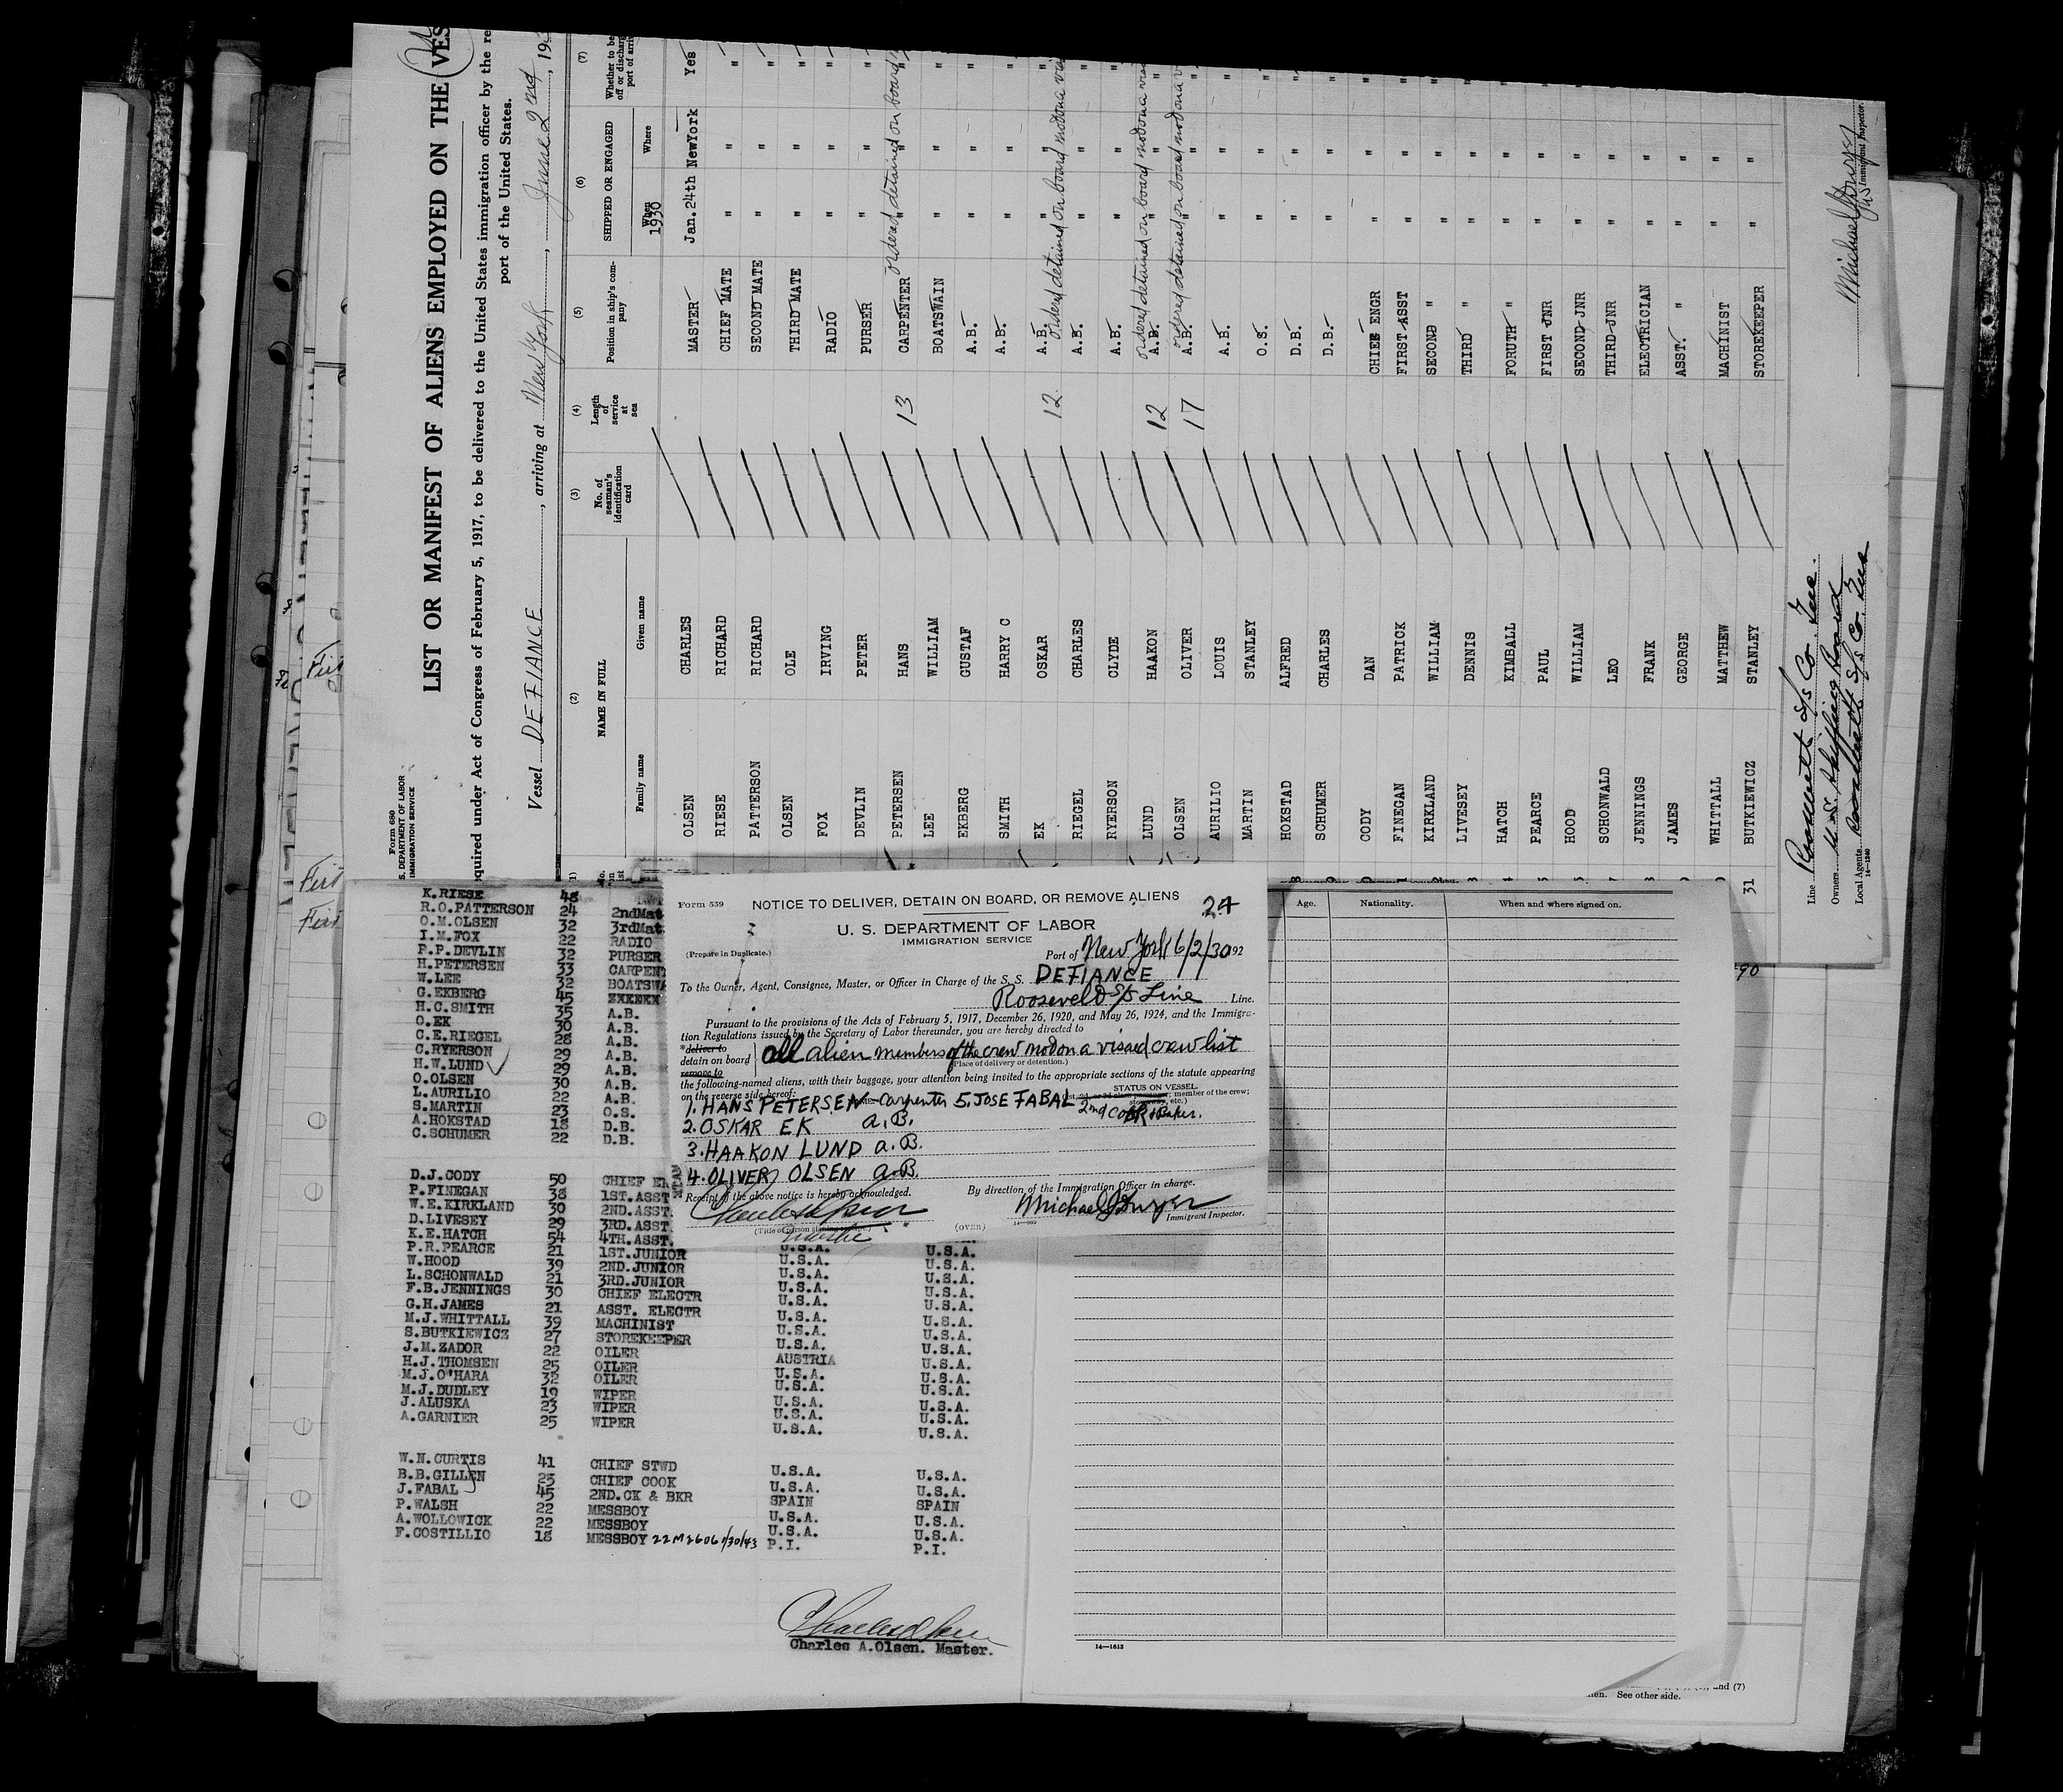 Form 680
S. DEPARTMENT OF LABOR
IMMIGRATION SERVICE
LIST OR MANIFEST OF ALIENS EMPLOYED ON THE VES
equired under Act of Congress of February 5, 1917, to be delivered to the United States immigration officer by the re
port of the United States.
Vessel DEFIANCE, arriving at New York, June 2nd, 19
(2) (3) (4) (5) (6) (7)
NAME IN FULL
Family name Given name
No. of seaman's identification card
Length of service at sea
Position in ship's company
SHIPPED OR ENGAGED
When Where
1930
OLSEN CHARLES MASTER Jan. 24th NewYork Yes
RIESE RICHARD CHIEF MATE " " "
PATTERSON RICHARD SECOND MATE " " "
OLSEN OLE THIRD MATE " " "
FOX IRVING RADIO " " "
DEVLIN PETER PURSER " " "
PETERSEN HANS 13 CARPENTER " " " ordered detained on board
LEE WILLIAM BOATSWAIN " " "
EKBERG GUSTAF A.B. " " "
SMITH HARRY C A.B. " " "
EK OSKAR 12 A.B. " " " ordered detained on board not on a vis
RIEGEL CHARLES A.B. " " "
RYERSON CLYDE A.B. " " "
LUND HAAKON 12 A.B. " " " ordered detained on board not on a vis
OLSEN OLIVER 17 A.B. " " " ordered detained on board not on a v
AURILIO LOUIS A.B. " " "
MARTIN STANLEY O.S. " " "
HOKSTAD ALFRED D.B. " " "
SCHUMER CHARLES D.B. " " "
CODY DAN CHIEF ENGR " " "
FINEGAN PATRICK FIRST ASST " " "
KIRKLAND WILLIAM SECOND " " " "
LIVESEY DENNIS THIRD " " " "
HATCH KIMBALL FORUTH " " " "
PEARCE PAUL FIRST JNR " " "
HOOD WILLIAM SECOND JNR " " "
SCHONWALD LEO THIRD JNR " " "
JENNINGS FRANK ELECTRICIAN " " "
JAMES GEORGE ASST. " " " "
WHITTALL MATTHEW MACHINIST " " "
31 BUTKIEWICZ STANLEY STOREKEEPER " " "
Line Roosevelt S/s Co. Inc.
Owners U.S. Shipping Board
Local Agents Roosevelt S/s Co. Inc
14—1240
Immigrant Inspector.
K.RIESE 48
R.O.PATTERSON 24 2ndMat
O.M.OLSEN 32 3rdMat
I.M.FOX 22 RADIO
P.P.DEVLIN 32 PURSER
H.PETERSEN 33 CARPEN
W.LEE 32 BOATSWA
G.EKBERG 45
H.C.SMITH 35 A.B.
O.EK 30 A.B.
C.E.RIEGEL 28 A.B.
C.RYERSON 29 A.B.
H.W.LUND 29 A.B.
O.OLSEN 30 A.B.
L.AURILIO 22 A.B.
S.MARTIN 23 O.S.
A.HOKSTAD 18 D.B.
C.SCHUMER 22 D.B.
D.J.CODY 50 CHIEF E
P.FINEGAN 38 1ST.ASST
W.E.KIRKLAND 30 2ND.ASST.
D.LIVESEY 29 3RD.ASST.
K.E.HATCH 54 4TH.ASST.
P.R.PEARCE 21 1ST.JUNIOR U.S.A. U.S.A.
W.HOOD 39 2ND.JUNIOR U.S.A. U.S.A.
L.SCHONWALD 21 3RD.JUNIOR U.S.A. U.S.A.
F.B.JENNINGS 30 CHIEF ELECTR U.S.A. U.S.A.
G.H.JAMES 21 ASST. ELECTR U.S.A. U.S.A.
M.J.WHITTALL 39 MACHINIST U.S.A. U.S.A.
S.BUTKIEWICZ 27 STOREKEEPER U.S.A. U.S.A.
J.M.ZADOR 22 OILER AUSTRIA U.S.A.
H.J.THOMSEN 25 OILER U.S.A. U.S.A.
M.J.O'HARA 32 OILER U.S.A. U.S.A.
M.J.DUDLEY 19 WIPER U.S.A. U.S.A.
J.ALUSKA 23 WIPER U.S.A. U.S.A.
A.GARNIER 25 WIPER U.S.A. U.S.A.
W.N.CURTIS 41 CHIEF STWD U.S.A. U.S.A.
B.B.GILLEN 25 CHIEF COOK U.S.A. U.S.A.
J.FABAL 45 2ND.CK & BKR SPAIN SPAIN
P.WALSH 22 MESSBOY U.S.A. U.S.A.
A.WOLLOWICK 22 MESSBOY U.S.A. U.S.A.
F.COSTILLIO 18 MESSBOY P.I. P.I.
Charles A.Olsen. Master.
Form 539
NOTICE TO DELIVER, DETAIN ON BOARD, OR REMOVE ALIENS
24
U. S. DEPARTMENT OF LABOR
IMMIGRATION SERVICE
(Prepare in Duplicate.)
Port of New York 6/2/30 192
To the Owner, Agent, Consignee, Master, or Officer in Charge of the S. S. DEFIANCE
Roosevelt S/S Line Line.
Pursuant to the provisions of the Acts of February 5, 1917, December 26, 1920, and May 26, 1924, and the Immigra-
tion Regulations issued by the Secretary of Labor thereunder, you are hereby directed to
*deliver to
detain on board all alien members of the crew not on a visaed crew list
remove to
(Place of delivery or detention.)
the following-named aliens, with their baggage, your attention being invited to the appropriate sections of the statute appearing
on the reverse side hereof:
STATUS ON VESSEL
1. HANS PETERSEN - Carpenter 5. JOSE FABAL 2nd Cook & Baker.
2. OSKAR EK A.B.
3. HAAKON LUND A.B.
4. OLIVER OLSEN A.B.
Receipt of the above notice is hereby acknowledged.
By direction of the Immigration Officer in charge.
Immigrant Inspector.
(OVER)
Age. Nationality. When and where signed on.
14—1613
and (7)
See other side.